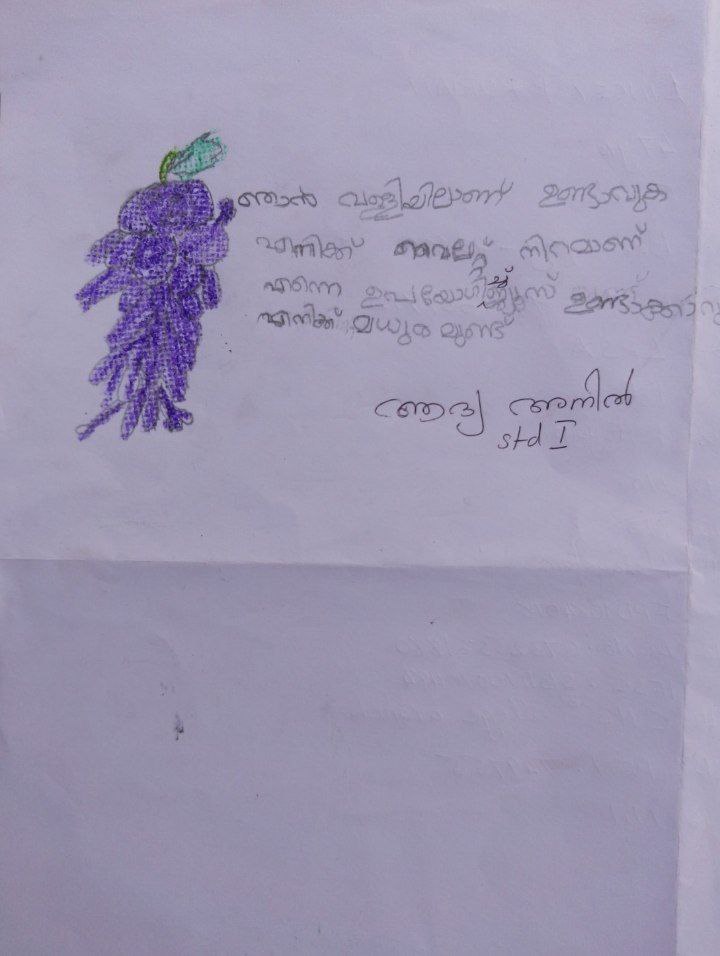 ഞാൻ വള്ളിയിലാണ് ഉണ്ടാവുക
എനിക്ക് വൈലറ്റ് നിറമാണ്
എന്നെ ഉപയോഗിച്ച് ജ്യൂസ് ഉണ്ടാക്കാറു
എനിക്ക് മധുരമുണ്ട്
ആദ്യ അനിൽ
std I